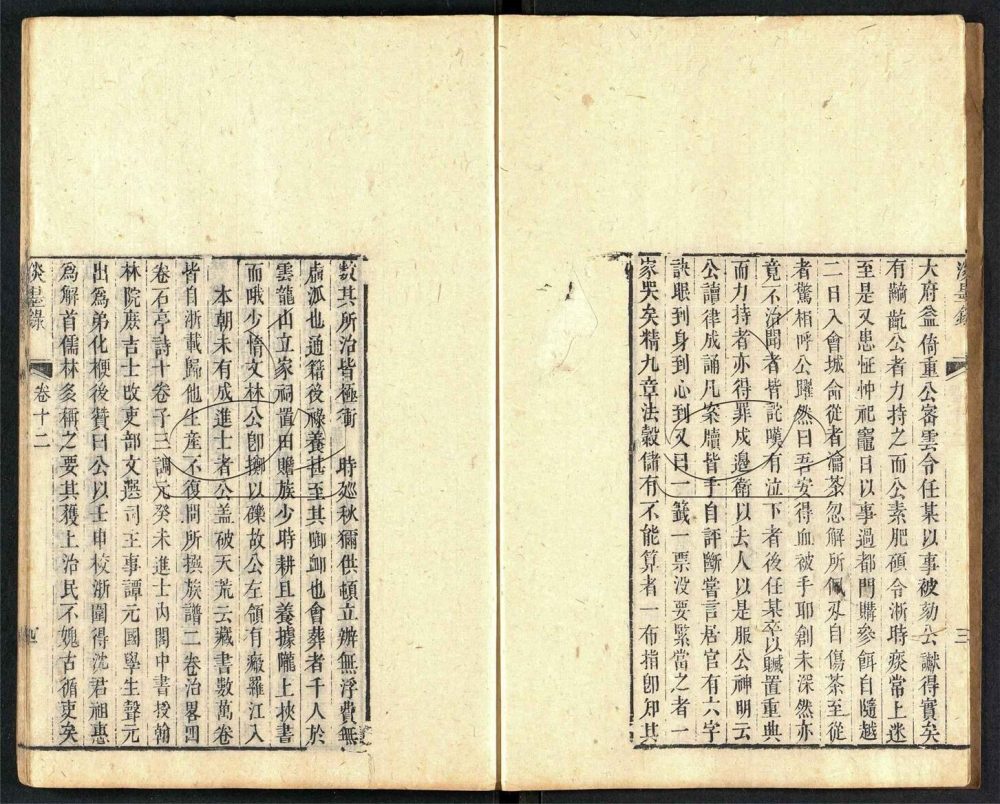 淡墨錄
三
大府益倚重公審雲令任某以事被劾公讞得實矣
有齮齕公者力持之而公素肥碩令浙時痰常上迷
至是又患怔忡祀竈日以事過都門購參餌自隨越
二日入會城命從者瀹茶忽解所佩刃自傷茶至從
者驚相呼公躍然曰吾安得血被手耶創未深然亦
竟不治聞者皆詫嘆有泣下者後任某卒以贓置重典
而力持者亦得罪戍邊衛以去人以是服公神明云
公讀律成誦凡案牘皆手自評斷嘗言居官有六字
訣眼到身到心到又曰一籤一票没要緊當之者一
家哭矣精九章法穀儲有不能算者一布指卽知其
數其所治皆極衝 時廵秋獮供頓立辦無浮費無
虛派也通籍後祿養甚至其啣卹也會葬者千人於
雲龍山立家祠置田贍族少時耕且養據隴上挾書
而哦少惰文林公卽擲以礫故公左頷有瘢羅江入
本朝未有成進士者公盖破天荒云藏書數萬卷
皆自浙載歸他生産不復問所撰族譜二卷治畧四
卷石亭詩十卷子三調元癸未進士內閣中書授翰
林院庶吉士改吏部文選司主事譚元國學生聲元
出爲弟化楩後贊曰公以壬申校浙圍得沈君祖惠
爲解首儒林多稱之要其獲上治民不媿古循吏矣
淡墨錄
卷十二